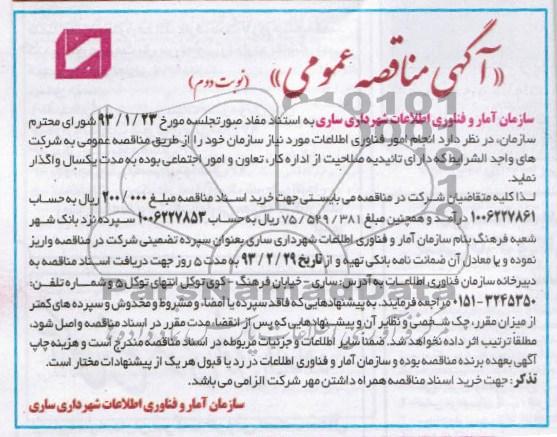 «آگهی مناقصه عمومی» (نوبت دوم)
سازمان آمار و فناوری اطلاعات شهرداری ساری به استناد مفاد صورتجلسه مورخ ۹۳/۱/۲۳ شورای محترم
سازمان، در نظر دارد انجام امور فناوری اطلاعات مورد نیاز سازمان خود را از طریق مناقصه عمومی به شرکت
های واجد الشرایط که دارای تائیدیه صلاحیت از اداره کار، تعاون و امور اجتماعی بوده به مدت یکسال واگذار
نماید.
لذا کلیه متقاضیان شرکت در مناقصه می بایستی جهت خرید اسناد مناقصه مبلغ ۲۰۰/۰۰۰ ریال به حساب
۱۰۰۶۲۲۷۸۶۱ درآمد و همچنین مبلغ ۷۵/۵۲۹/۳۸۱ ریال به حساب ۱۰۰۶۲۲۷۸۵۳ سپرده نزد بانک شهر
شعبه فرهنگ بنام سازمان آمار و فناوری اطلاعات شهرداری ساری بعنوان سپرده تضمینی شرکت در مناقصه واریز
نموده و یا معادل آن ضمانت نامه بانکی تهیه و از تاریخ ۹۳/۲/۲۹ به مدت ۵ روز جهت دریافت اسناد مناقصه به
دبیرخانه سازمان فناوری اطلاعات به آدرس: ساری - خیابان فرهنگ - کوی توکل انتهای توکل ۵ و شماره تلفن:
۰۱۵۱-۳۲۴۵۳۵۰ مراجعه فرمایند. به پیشنهادهایی که فاقد سپرده یا امضاء و مشروط و مخدوش و سپرده های کمتر
از میزان مقرر، چک شخصی و نظایر آن و پیشنهادهایی که پس از انقضاء مدت مقرر در اسناد مناقصه واصل شود،
مطلقا ترتیب اثر داده نخواهد شد. ضمنا سایر اطلاعات و جزئیات مربوطه در اسناد مناقصه مندرج است و هزینه چاپ
آگهی بعهده برنده مناقصه بوده و سازمان آمار و فناوری اطلاعات در رد یا قبول هر یک از پیشنهادات مختار است.
تذکر: جهت خرید اسناد مناقصه همراه داشتن مهر شرکت الزامی می باشد.
سازمان آمار و فناوری اطلاعات شهرداری ساری